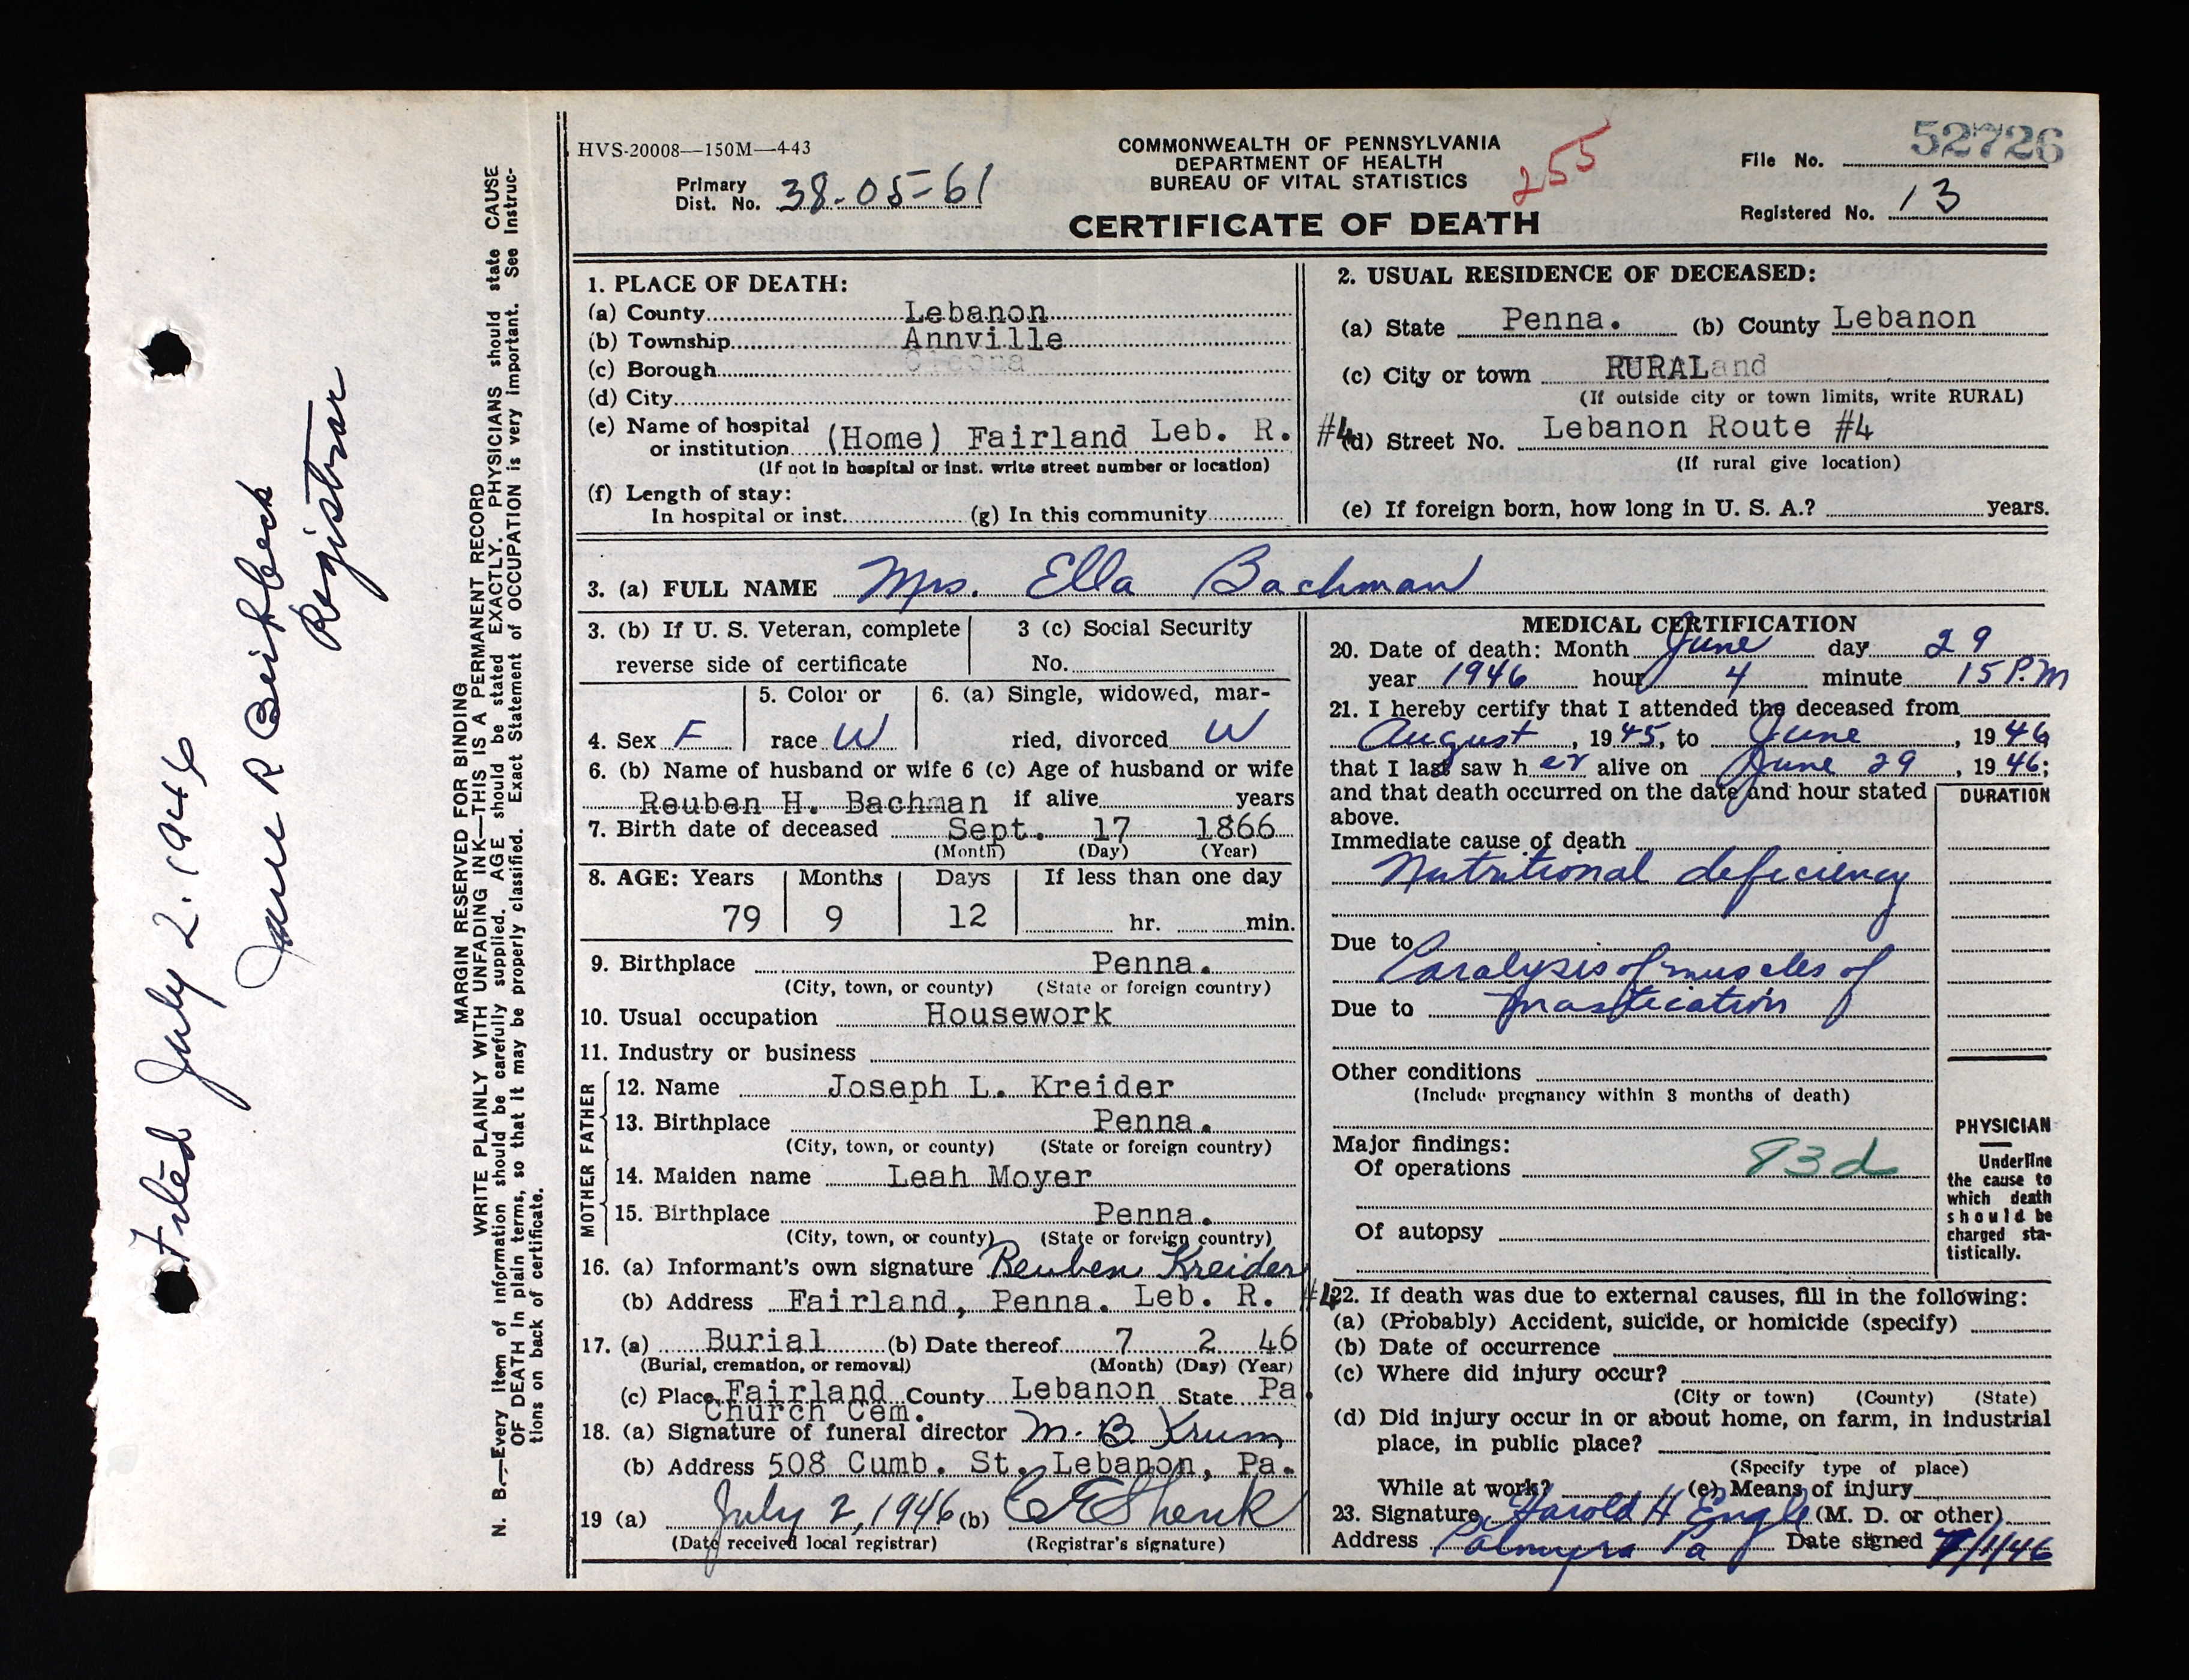 HVS-20008—150M—4-43
Primary
Dist. No. 38-05-61
COMMONWEALTH OF PENNSYLVANIA
DEPARTMENT OF HEALTH
BUREAU OF VITAL STATISTICS
CERTIFICATE OF DEATH
255
File No. 52726
Registered No. 13
1. PLACE OF DEATH:
(a) County Lebanon
(b) Township Annville
(c) Borough Cleona
(d) City
(e) Name of hospital
or institution (Home) Fairland Leb. R. #4
(If not in hospital or inst. write street number or location)
(f) Length of stay:
In hospital or inst. (g) In this community
2. USUAL RESIDENCE OF DECEASED:
(a) State Penna. (b) County Lebanon
(c) City or town RURAL and
(If outside city or town limits, write RURAL)
(d) Street No. Lebanon Route #4
(If rural give location)
(e) If foreign born, how long in U. S. A.? years.
3. (a) FULL NAME Mrs. Ella Bachman
3. (b) If U. S. Veteran, complete
reverse side of certificate
3 (c) Social Security
No.
4. Sex F
5. Color or
race W
6. (a) Single, widowed, mar-
ried, divorced W
6. (b) Name of husband or wife 6 (c) Age of husband or wife
Reuben H. Bachman if alive years
7. Birth date of deceased Sept. 17 1866
(Month) (Day) (Year)
8. AGE: Years Months Days If less than one day
79 9 12 hr. min.
9. Birthplace Penna.
(City, town, or county) (State or foreign country)
10. Usual occupation Housework
11. Industry or business
FATHER
12. Name Joseph L. Kreider
13. Birthplace Penna.
(City, town, or county) (State or foreign country)
MOTHER
14. Maiden name Leah Moyer
15. Birthplace Penna.
(City, town, or county) (State or foreign country)
16. (a) Informant's own signature Reuben Kreider
(b) Address Fairland, Penna. Leb. R. #4
17. (a) Burial (b) Date thereof 7 2 46
(Burial, cremation, or removal) (Month) (Day) (Year)
(c) Place Fairland County Lebanon State Pa.
Church Cem.
18. (a) Signature of funeral director M. B Krum
(b) Address 508 Cumb. St. Lebanon, Pa.
19 (a) July 2, 1946 (b) C E Shenk
(Date received local registrar) (Registrar's signature)
MEDICAL CERTIFICATION
20. Date of death: Month June day 29
year 1946 hour 4 minute 15 P.M
21. I hereby certify that I attended the deceased from
August, 1945, to June, 1946
that I last saw her alive on June 29, 1946;
and that death occurred on the date and hour stated
above.
DURATION
Immediate cause of death
Nutritional deficiency
Due to
Paralysis of muscles of
Due to mastication
Other conditions
(Include pregnancy within 3 months of death)
Major findings:
Of operations 83d
Of autopsy
PHYSICIAN
Underline
the cause to
which death
should be
charged sta-
tistically.
22. If death was due to external causes, fill in the following:
(a) (Probably) Accident, suicide, or homicide (specify)
(b) Date of occurrence
(c) Where did injury occur?
(City or town) (County) (State)
(d) Did injury occur in or about home, on farm, in industrial
place, in public place?
(Specify type of place)
While at work? (e) Means of injury
23. Signature Harold H Engle (M. D. or other)
Address Palmyra Pa Date signed 7/1/46
MARGIN RESERVED FOR BINDING
WRITE PLAINLY WITH UNFADING INK—THIS IS A PERMANENT RECORD
N. B.—Every item of information should be carefully supplied. AGE should be stated EXACTLY. PHYSICIANS should state CAUSE
OF DEATH in plain terms, so that it may be properly classified. Exact Statement of OCCUPATION is very important. See Instruc-
tions on back of certificate.
Filed July 2. 1946
Registrar